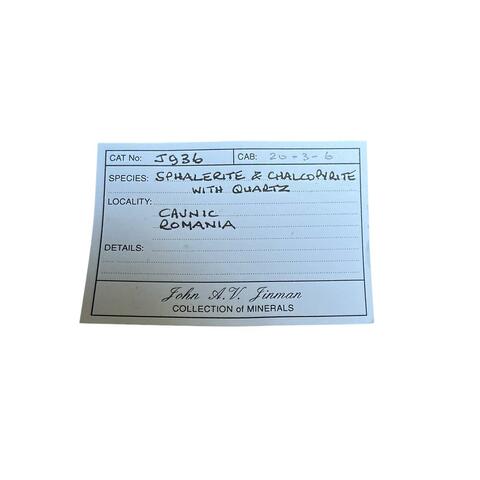 CAT No: J936 CAB: 20-3-6
SPECIES: SPHALERITE & CHALCOPYRITE
WITH QUARTZ
LOCALITY:
CAVNIC
ROMANIA
DETAILS:
John A.V. Jinman
COLLECTION of MINERALS